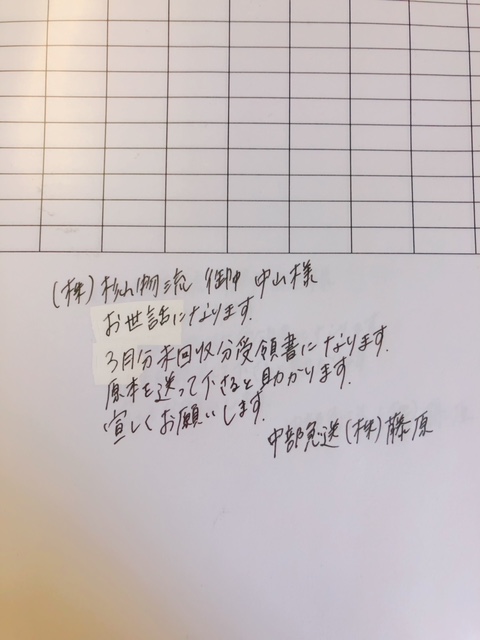 (株)杉山物流 御中 中山様
お世話になります.
3月分未回収分受領書になります.
原本を送って下さると助かります.
宜しくお願いします.
中部急送(株)藤原